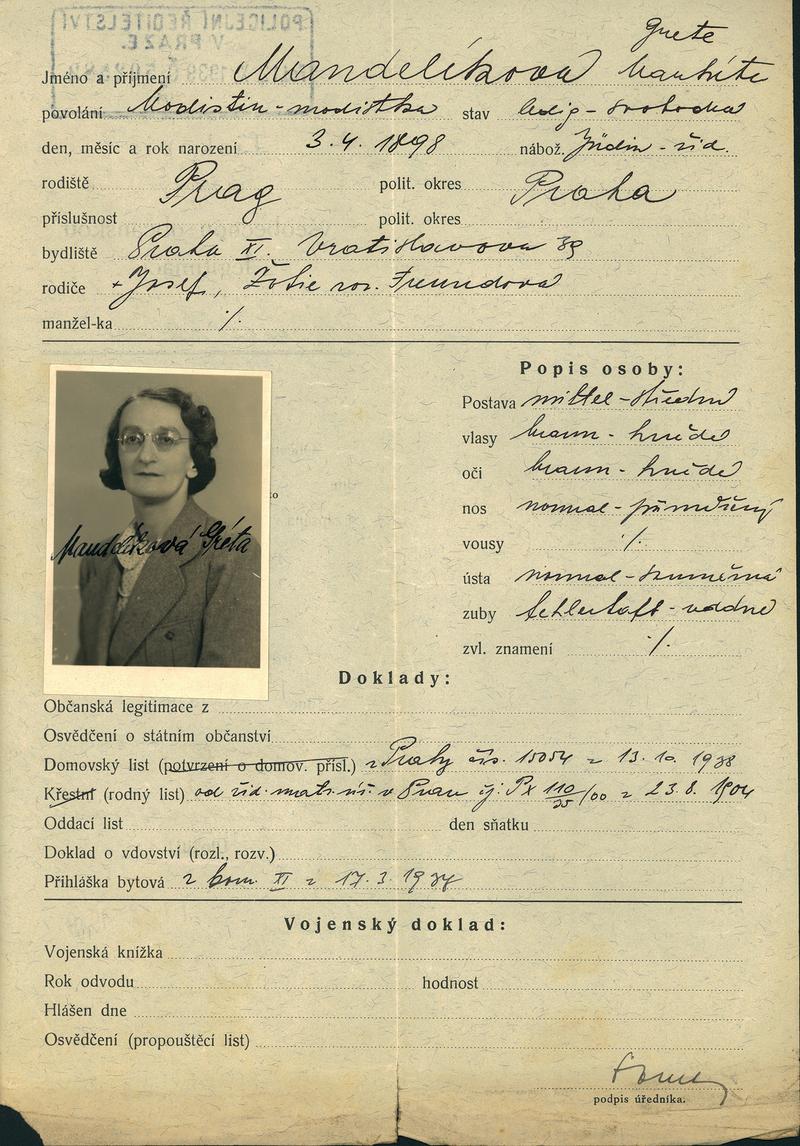 POLICEJNÍ ŘEDITELSTVÍ
V PRAZE.
Grete
Jméno a příjmení Mandelíková Markéta
povolání Modistin - modistka stav ledig - svobodná
den, měsíc a rok narození 3. 4. 1898 nábož. Jüdin - žid.
rodiště Prag polit. okres Praha
příslušnost polit. okres
bydliště Praha XI. Vratislavova 39
rodiče + Josef, Žofie roz. Freundová
manžel-ka ./.
Popis osoby:
Postava mittel - střední
vlasy braun - hnědé
oči braun - hnědé
nos normal - přiměřený
vousy ./.
ústa normal - souměrná
zuby fehlerhaft - vadné
zvl. znamení ./.
Mandelíková Gréta
Doklady:
Občanská legitimace z
Osvědčení o státním občanství
Domovský list (potvrzení o domov. přísl.) z Prahy čís. 15054 z 13. 10. 1938
Křestní (rodný list) od žid. mat. v Praze čj. 110/00 z 23. 8. 1904
Oddací list den sňatku
Doklad o vdovství (rozl., rozv.)
Přihláška bytová z kom. XI z 17. 3. 1934
Vojenský doklad:
Vojenská knížka
Rok odvodu hodnost
Hlášen dne
Osvědčení (propouštěcí list)
podpis úředníka.